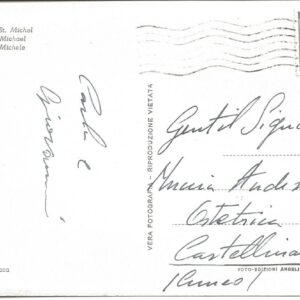 St. Michel
Michael
Michele
Carla e
Giovanni
VERA FOTOGRAFIA - RIPRODUZIONE VIETATA
Gentil Sign
Ostetrica
Castellina
(Cuneo)
FOTO-EDIZIONI ANGEL